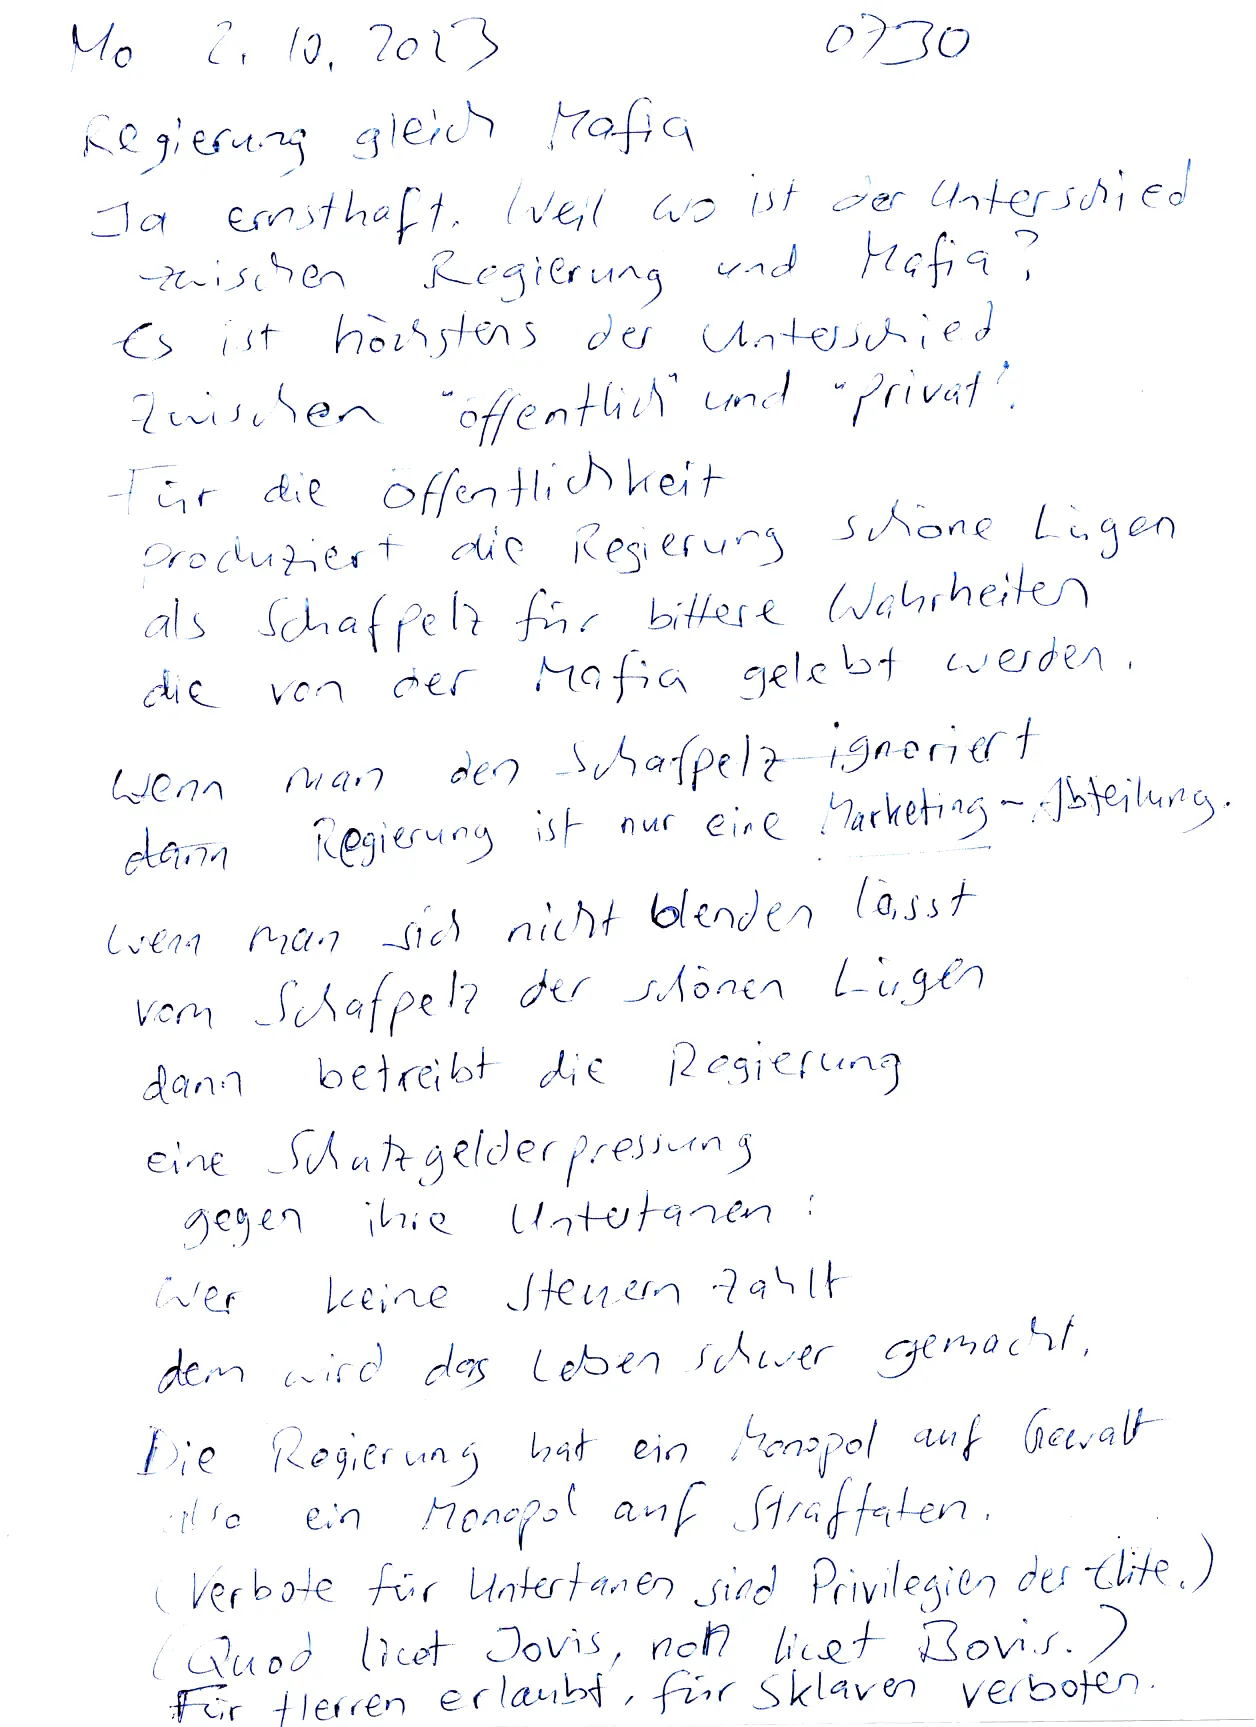 Mo 2.10.2023 0730
Regierung gleich Mafia
Ja ernsthaft. Weil wo ist der Unterschied
zwischen Regierung und Mafia?
Es ist höchstens der Unterschied
zwischen "öffentlich" und "privat".
Für die Öffentlichkeit
produziert die Regierung schöne Lügen
als Schafpelz für bittere Wahrheiten
die von der Mafia gelebt werden.
Wenn man den Schafpelz ignoriert
dann Regierung ist nur eine Marketing-Abteilung.
Wenn man sich nicht blenden lässt
vom Schafpelz der schönen Lügen
dann betreibt die Regierung
eine Schutzgelderpressung
gegen ihre Untertanen:
Wer keine Steuern zahlt
dem wird das Leben schwer gemacht.
Die Regierung hat ein Monopol auf Gewalt
also ein Monopol auf Straftaten.
(Verbote für Untertanen sind Privilegien der Elite.)
(Quod licet Jovis, non licet Bovis.)
Für Herren erlaubt, für Sklaven verboten.